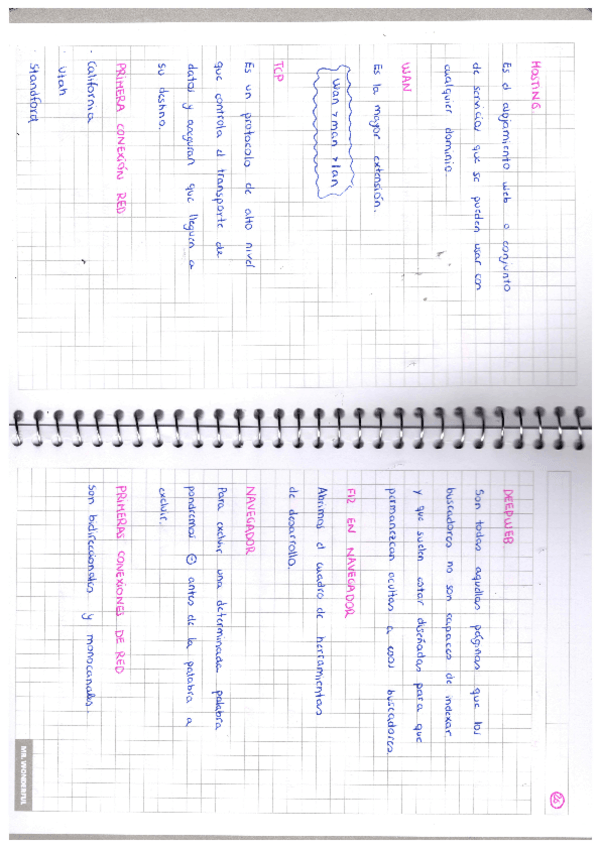 HOSTING
Es el alojamiento web o conjunto
de servicios que se pueden usar con
cualquier dominio.
WAN
Es la mayor extensión.
wan > man > lan
TCP
Es un protocolo de alto nivel
que controla el transporte de
datos y aseguran que lleguen a
su destino.
PRIMERA CONEXIÓN RED
· California
· Utah
· Standford
26
DEEPWEB
Son todas aquellas páginas que los
buscadores no son capaces de indexar
y que suelen estar diseñadas para que
permanezcan ocultas a esos buscadores.
F12 EN NAVEGADOR
Abrimos el cuadro de herramientas
de desarrollo.
NAVEGADOR
Para excluir una determinada palabra
pondremos - antes de la palabra a
excluir.
PRIMERAS CONEXIONES DE RED
Son bidireccionales y monocanales.
MR. WONDERFUL